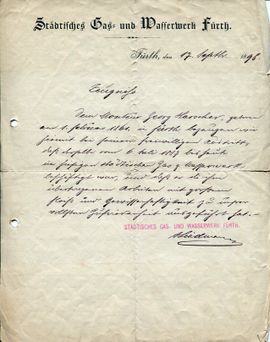 Städtisches Gas- und Wasserwerk Fürth.
Fürth, den 17. Septbr. 1898
Zeugniss
Dem Monteur Georg geboren
am 1. Februar in Fürth bezeugen wir
hiermit bei seinem freiwilligen Austritt,
daß derselbe vom 6. Juli bis heute
im hiesigen städtischen Gas & Wasserwerk
beschäftigt war, und daß er die ihm
übertragenen Arbeiten mit großem
Fleiß und Gewissenhaftigkeit zu unserer
vollsten Zufriedenheit ausgeführt hat.
STÄDTISCHES GAS- UND WASSERWERK FÜRTH.